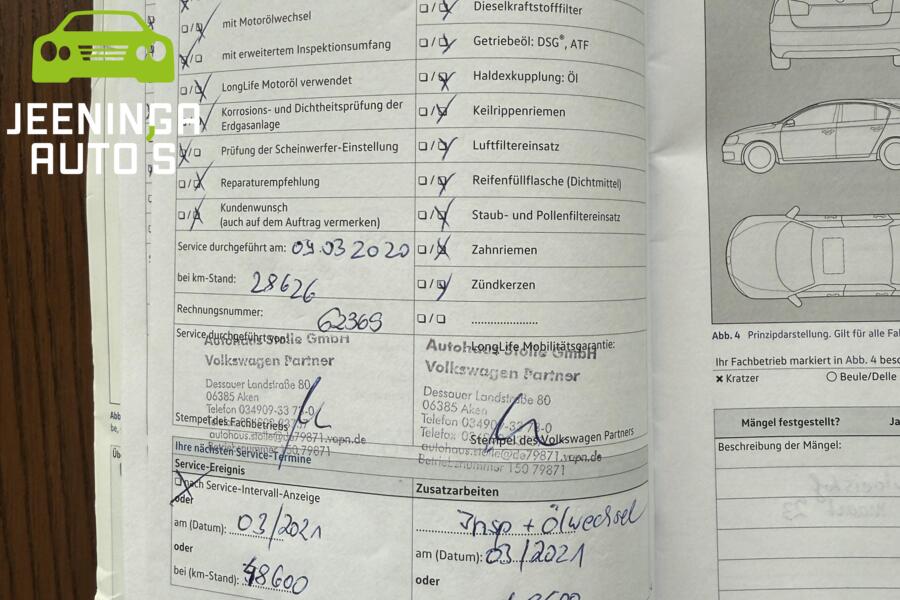 JEENINGA
AUTO'S
mit Motorölwechsel
mit erweitertem Inspektionsumfang
LongLife Motoröl verwendet
Korrosions- und Dichtheitsprüfung der
Erdgasanlage
Prüfung der Scheinwerfer-Einstellung
Reparaturempfehlung
Kundenwunsch
(auch auf dem Auftrag vermerken)
Service durchgeführt am: 09.03 2020
bei km-Stand: 28626
Rechnungsnummer: 62369
Service durchgeführt von:
Autohaus Stolle GmbH
Volkswagen Partner
Dessauer Landstraße 80
06385 Aken
Telefon 034909-33
Stempel des Fachbetriebs
autohaus.stolle@da79871.vapn.de
Betriebsnummer 150 79871
Ihre nächsten Service-Termine
Service-Ereignis
nach Service-Intervall-Anzeige
oder
am (Datum): 03/2021
oder
bei (km-Stand): 48600
Dieselkraftstofffilter
Getriebeöl: DSG®, ATF
Haldexkupplung: Öl
Keilrippenriemen
Luftfiltereinsatz
Reifenfüllflasche (Dichtmittel)
Staub- und Pollenfiltereinsatz
Zahnriemen
Zündkerzen
LongLife Mobilitätsgarantie:
Autohaus Stolle GmbH
Volkswagen Partner
Dessauer Landstraße 80
06385 Aken
Telefon
Telefax
Stempel des Volkswagen Partners
autohaus.stolle@da79871.vapn.de
Betriebsnummer 150 79871
Zusatzarbeiten
Insp + Ölwechsel
am (Datum): 03/2021
oder
Abb. 4 Prinzipdarstellung. Gilt für alle
Ihr Fachbetrieb markiert in Abb. 4
× Kratzer
Beule/Delle
Mängel festgestellt?
Beschreibung der Mängel: